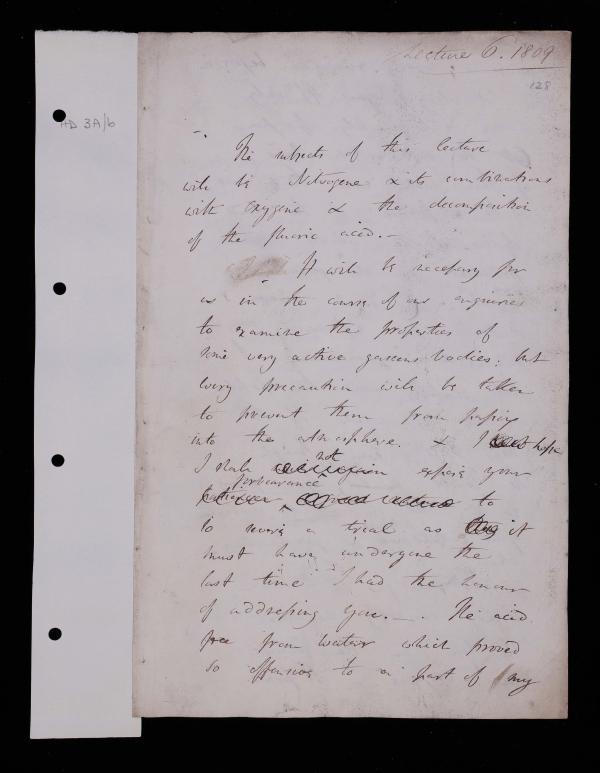 Lecture 6. 1809
128
HD 3A/6
The subjects of this lecture
will be Nitrogene & its combinations
with oxygene & the decomposition
of the fluoric acid. —
It will be necessary for
us in the course of our enquiries
to examine the properties of
some very active gaseous bodies; but
every precaution will be taken
to prevent them from passing
into the atmosphere. & I hope
I shall not again expose your
perseverance to
so severe a trial as it
must have undergone the
last time I had the honour
of addressing you. — . The acid
free from water which proved
so offensive to a part of my